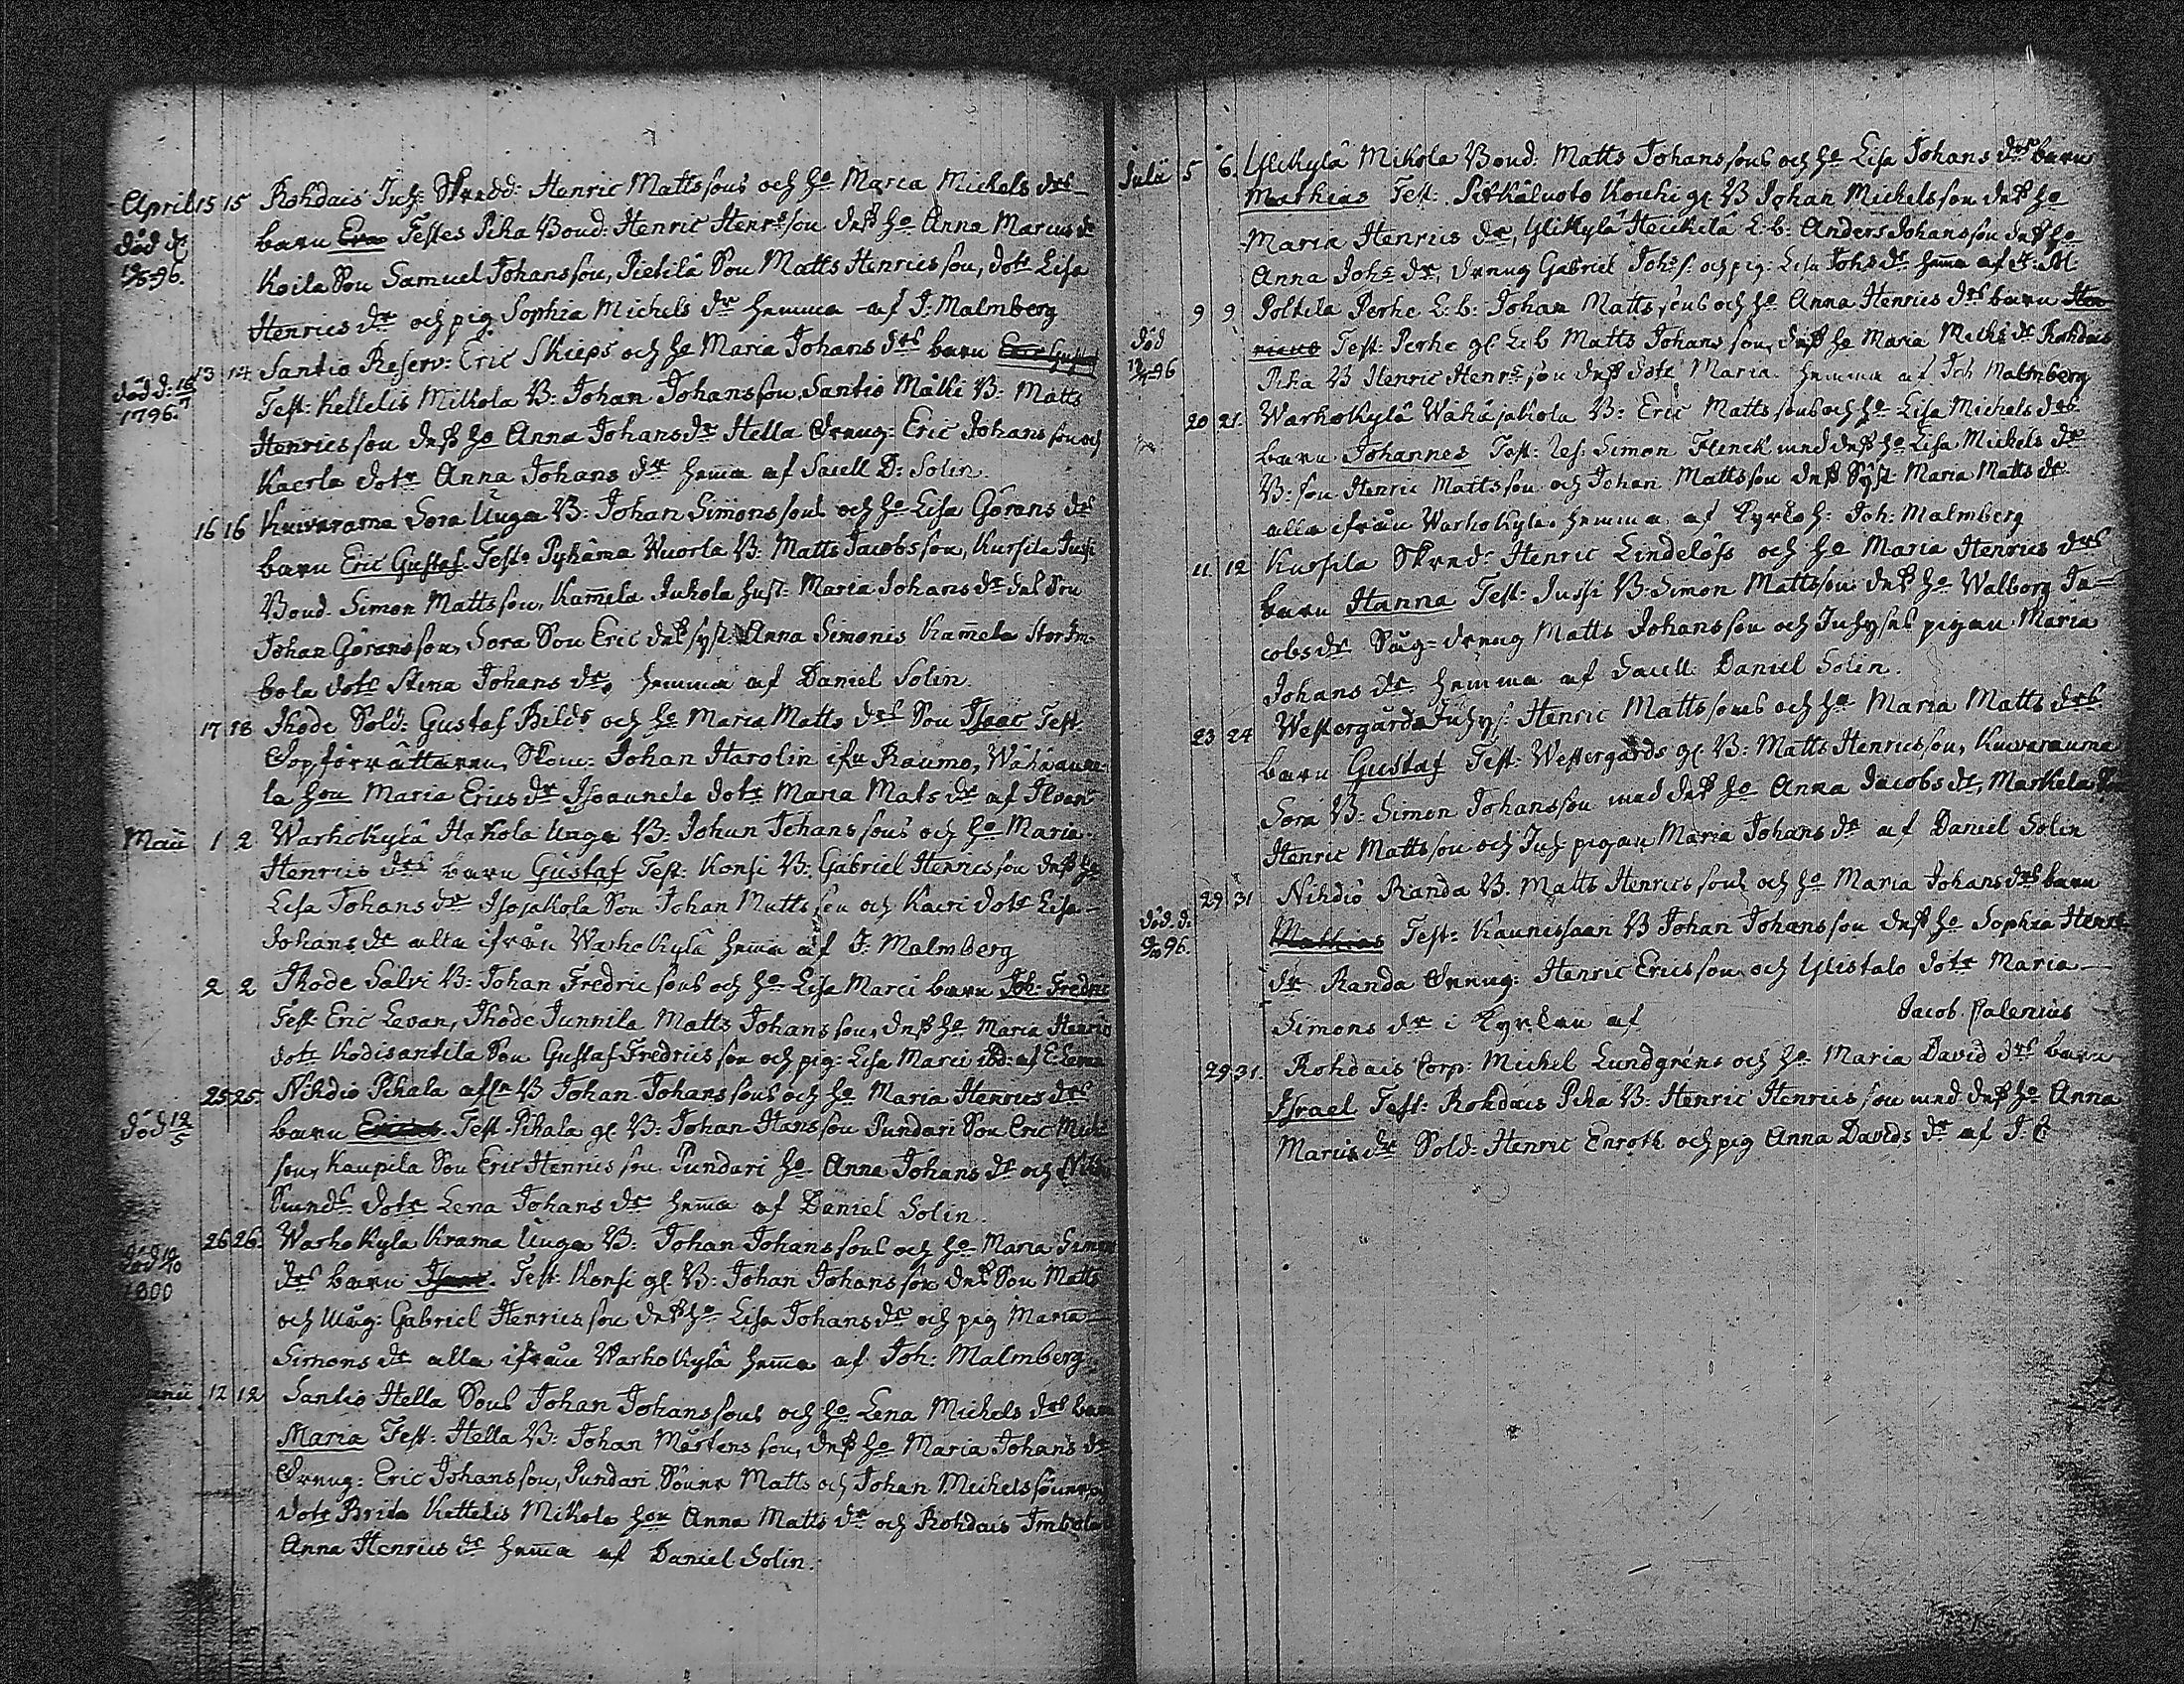 April 15 15 Rohdais Inh: Skredd: Henric Mattssons och ho Maria Michels drs
död d barn Eva Testes Pika Bond: Henric Henrsson dess ho Anna Marcus dr
96. Koila Son Samuel Johansson, Pietilä Son Matts Henricsson, dotr Lisa
Henrics dr och pig Sophia Michels dr hemma af J: Malmberg
13 14 Santio Reserv: Eric Skieps och ho Maria Johans drs barn Eric Gustaf
död d. 1796. Test: Kellelis Mikola B: Johan Johansson, Santio Mälki B: Matts
Henricsson dess ho Anna Johansdr Hella Dreng: Eric Johansson och
Kaerla dotr Anna Johans dr hema af Sacell D: Solin
16 16 Kuivarama Sora Unga B: Johan Simonssons och ho Lisa Görans drs
barn Eric Gustaf Test: Pyhäma Wuorla B: Matts Jacobsson, Kursila Jussi
Bond. Simon Mattsson, Kamela Jukola hust: Maria Johans dr
Johan Göransson, Sora Son Eric dess syst Anna Simonis Kamela Stor Im-
bola dotr Stina Johans dr, hemma af Daniel Solin
17 18 Ihode Sold: Gustaf Bilds och ho Maria Matts drs Son Isaac Test.
Dopförrättaren, Skom: Johan Harolin ifrn Raumo, Wähäaune-
la hon Maria Erics dr Isoaunela dotr Maria Mats dr af
Maii 1 2 Warhokylä Hakola Unga B: Johan Johanssons och ho Maria
Henrics drs barn Gustaf Test: Konsi B: Gabriel Henricsson dess ho
Lisa Johans dr Isojakola Son Johan Mattsson och Kairi dotr Lisa
Johans dr alla ifrån Warhokylä hema af J: Malmberg
2 2 Ihode Salvi B: Johan Fredricsons och ho Lisa Marci barn Joh: Fredric
Test Eric Levan, Ihode Junnila Matts Johansson, dess ho Maria Henric
dotr Kodisantila Son Gustaf Fredricsson och pig: Lisa Marci
25 25. Nihdio Pihala B Johan Johanssons och ho Maria Henrics drs
död 12/5 barn Ericus. Test Pihala gl B: Johan Hansson Pundari Son Eric Mich
son, Kaupila Son Eric Henricsson Pundari ho Anna Johans dr och
Sunds dotr Lena Johans dr hema af Daniel Solin
26 26. Warhokyla Krama Unga B: Johan Johanssons och ho Maria Simon
död 1800 drs barn Isaac. Test: Konsi gl B: Johan Johansson dess Son Matts
och Måg: Gabriel Henricsson dess ho Lisa Johans dr och pig Maria
Simons dr alla ifrån Warhokylä hema af Joh: Malmberg
12 12 Santio Hella Sons Johan Johanssons och ho Lena Michels drs barn
Maria Test: Hella B: Johan Mårtensson, dess ho Maria Johans dr
Dreng: Eric Johansson, Pundari Söner Matts och Johan Michelssöner,
dotr Brita Kettelis Mikola hon Anna Matts dr och Rohdais Imbola
Anna Henrics dr hema af Daniel Solin.
Julii 5 6. Ylikylä Mikola Bond: Matts Johanssons och ho Lisa Johans drs barn
Mathias Test: Pitkäluoto Kouhi gl B Johan Michelsson dess ho
Maria Henrics dr, Ylikylä Heickilä L:b: Anders Johansson dess ho
Anna Johs dr, dreng Gabriel Johs s. och pig: Lisa Johs dr hema af J: M
9 9 Poltila Perhe L:b: Johan Mattssons och ho Anna Henrics drs barn Hen
död 96 ricus Test: Perhe gl L:b Matts Johansson, dess ho Maria Michs dr Rohdais
Pika B Henric Henrsson dess dotr Maria. hemma af Joh Malmberg
20 21. Warhokylä Wähäjakola B: Eric Mattssons och ho Lisa Michels drs
barn Johannes Test: Simon Flenck med dess ho Lisa Michels dr
B: son Henric Mattsson och Johan Mattsson dess Syst Maria Matts dr
alla ifrån Warhokylä. hemma af Kyrkoh: Joh: Malmberg
11 12 Kursila Skred: Henric Lindelöfs och ho Maria Henrics drs
barn Hanna Test: Jussi B: Simon Mattsson dess ho Walborg Ja-
cobs dr dreng Matts Johansson och Inhyses pigan Maria
Johans dr hemma af Sacell Daniel Solin.
23 24 Westergårds Inhys: Henric Mattssons och ho Maria Matts drs
barn Gustaf Test: Westergårds gl B: Matts Henricsson, Kuivarauma
Sora B: Simon Johansson med dess ho Anna Jacobs dr, Markela
Henric Mattsson och Inh pigan Maria Johans dr af Daniel Solin
29 31 Nihdiö Randa B. Matts Henricssons och ho Maria Johans drs barn
död. d. 96. Mathias Test: Kaunissaari B Johan Johansson dess ho Sophia Henric
dr Randa Dreng: Henric Ericsson och Ylistalo dotr Maria
Simons dr i Kyrkan af Jacob Palenius
29 31. Rohdais Corp: Michel Lundgréns och ho Maria David drs barn
Israel Test: Rohdais Pika B: Henric Henricsson med dess ho Anna
Marcis dr Sold: Henric Enroth och pig Anna Davids dr af J: P